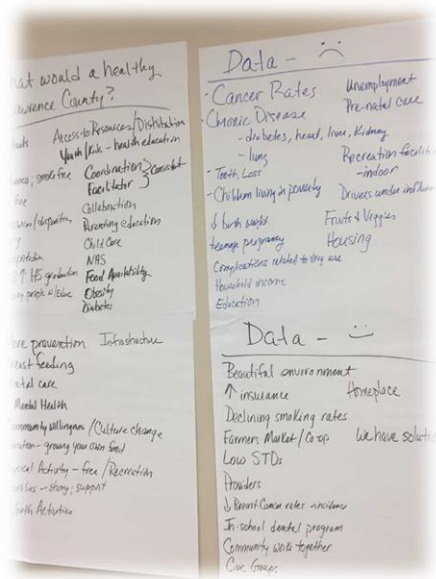 hat would a healthy
awrence County?
Access to Resources/Distribution
Youth/Kids - health education
smoke free
Coordination } Consistent
free
Facilitator
Collaboration
Parenting education
Child Care
NAS
↑ HS graduation
Food Availability
Obesity
Diabetes
ore prevention Infrastructure
reast feeding
ntal care
Mental Health
mmunity willingness/Culture change
growing your own food
ical Activity - free/Recreation
ilies - strong; support
outh Activities
Data - :(
- Cancer Rates
- Chronic Disease
- diabetes, heart, liver, Kidney
- lung
- Tooth Loss
- Children living in poverty
↓ birth weight
teenage pregnancy
Complications related to drug use
Household income
Education
Unemployment
Pre-natal care
Recreation faciliti
- indoor
Drivers under influen
Fruits & Veggies
Housing
Data - :)
Beautiful environment
↑ insurance
Homeplace
Declining smoking rates
Farmers Market/Co-op
We have solution
Low STDs
Providers
↓ Breast Cancer rates - incidence
In-school dental program
Community work together
Civic Groups